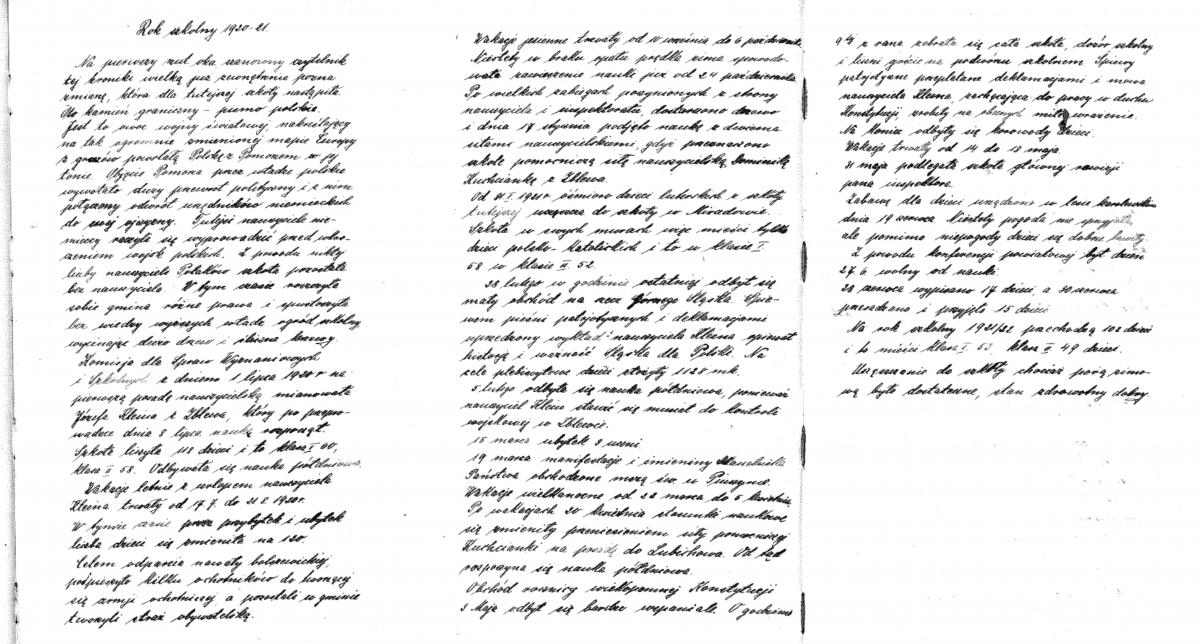 Rok szkolny 1920-21.
Na pierwszy rzut oka szanowny czytelnik
tej kroniki wielką już zewnętrznie pozna
zmianę, która dla tutejszej szkoły nastąpiła
Oto kamień graniczny - pismo polskie.
Jest to owoc wojny światowej, nakreślający
na tak ogromnie zmienionej mapie Europy
z gruzów powstałą Polskę z Pomorzem w jej
łonie. Objęcie Pomorza przez władze polskie
wywołało duży przewrót polityczny i z nim
połączony odwrót urzędników niemieckich
do swej ojczyzny. Tutejsi nauczyciele nie-
mieccy raczyli się wyprowadzić przed wkro-
czeniem wojsk polskich. Z powodu nikłej
liczby nauczycieli Polaków szkoła pozostała
bez nauczyciela. W tym czasie rościła
sobie gmina różne prawa i spustoszyła
bez wiedzy wyższych władz ogród szkolny
wycinając dużo drzew i krzewy.
Komisja dla Spraw Wyznaniowych
i Szkolnych z dniem 1 lipca 1920 r na
pierwszą posadę nauczycielską mianowała
Józefa Kleina z Zblewa, który po przepro-
wadzce dnia 8 lipca naukę rozpoczął.
Szkoła liczyła 118 dzieci i to klasa I 60,
klasa II 58. Odbywała się nauka półdniowa.
Wakacje letnie z urlopem nauczyciela
Kleina trwały od 17.7. do 21.8. 1920 r.
W tymże czasie przez przybytek i ubytek
liczba dzieci się zmieniła na 120.
Celem odparcia nawały bolszewickiej,
pospieszyło kilku ochotników do tworzącej
się armji ochotniczej a pozostali w gminie
tworzyli straż obywatelską.
Wakacje jesienne trwały od września do 6 października
Niestety w braku opału prędka zima spowodo-
wała zawieszenie nauki już od 24 października
Po wielkich zabiegach poczynionych z strony
nauczyciela i inspektoratu dostarczono drzewo
i dnia 17 stycznia podjęto naukę z dwoma
siłami nauczycielskimi, gdyż przeznaczono
szkole pomocniczą siłę nauczycielską Dominikę
Kuchciankę z Zblewa.
Od 31 I. 1921 r ośmioro dzieci luterskich z szkoły
tutejszej uczęszcza do szkoły w Miradowie.
Szkoła w swych murach więc mieści tylko
dzieci polsko-katolickich i to w klasie I
58 w klasie II 52.
28 lutego w godzinie ostatniej odbył się
mały obchód na rzecz Górnego Śląska. Śpie-
wem pieśni patrjotycznych i deklamacjami
uprzedzony wykład nauczyciela Kleina opiewał
historję i ważność Śląska dla Polski. Na
cele plebiscytowe dzieci złożyły 1125 mk.
5 lutego odbyła się nauka półdniowa, ponieważ
nauczyciel Klein stawić się musiał do kontroli
wojskowej w Zblewie.
15 marca ubytek 3 uczni.
19 marca manifestacje i imieniny Naczelnika
Państwa obchodzone mszą św. w Pinczynie.
Wakacje wielkanocne od 22 marca do 5 kwietnia
Po wakacjach 20 kwietnia stosunki naukowe
się zmieniły przeniesieniem siły pomocniczej
Kuchcianki na posadę do Lubichowa. Od tąd
rozpoczyna się nauka półdniowa.
Obchód rocznicy wiekopomnej Konstytucji
3 Maja odbył się bardzo wspaniale. O godzinie
9tej z rana zebrała się cała szkoła, dozór szkolny
i liczni goście na podwórzu szkolnem. Śpiewy
patrjotyczne przeplatane deklamacjami i mowa
nauczyciela Kleina, zachęcająca do pracy w duchu
Konstytucji zrobiły na obecnych miłe wrażenie.
Na koniec odbyły się korowody dzieci.
Wakacje trwały od 14 do 18 maja.
31 maja podlegała szkoła głównej rewizji
pana inspektora.
Zabawę dla dzieci urządzono w lesie
dnia 19 czerwca. Niestety pogoda nie sprzyjała,
ale pomimo niepogody dzieci się dobrze bawiły.
Z powodu konferencji powiatowej był dzień
27.6 wolny od nauki.
28 czerwca wypisano 17 dzieci, a 30 czerwca
przesadzono i przyjęto 15 dzieci.
Na rok szkolny 1921/22 przechodzą 102 dzieci
i to mieści klasa I. 53. klasa II 49 dzieci.
Uczęszczanie do szkoły chociaż porą zimo-
wą było dostateczne, stan zdrowotny dobry.